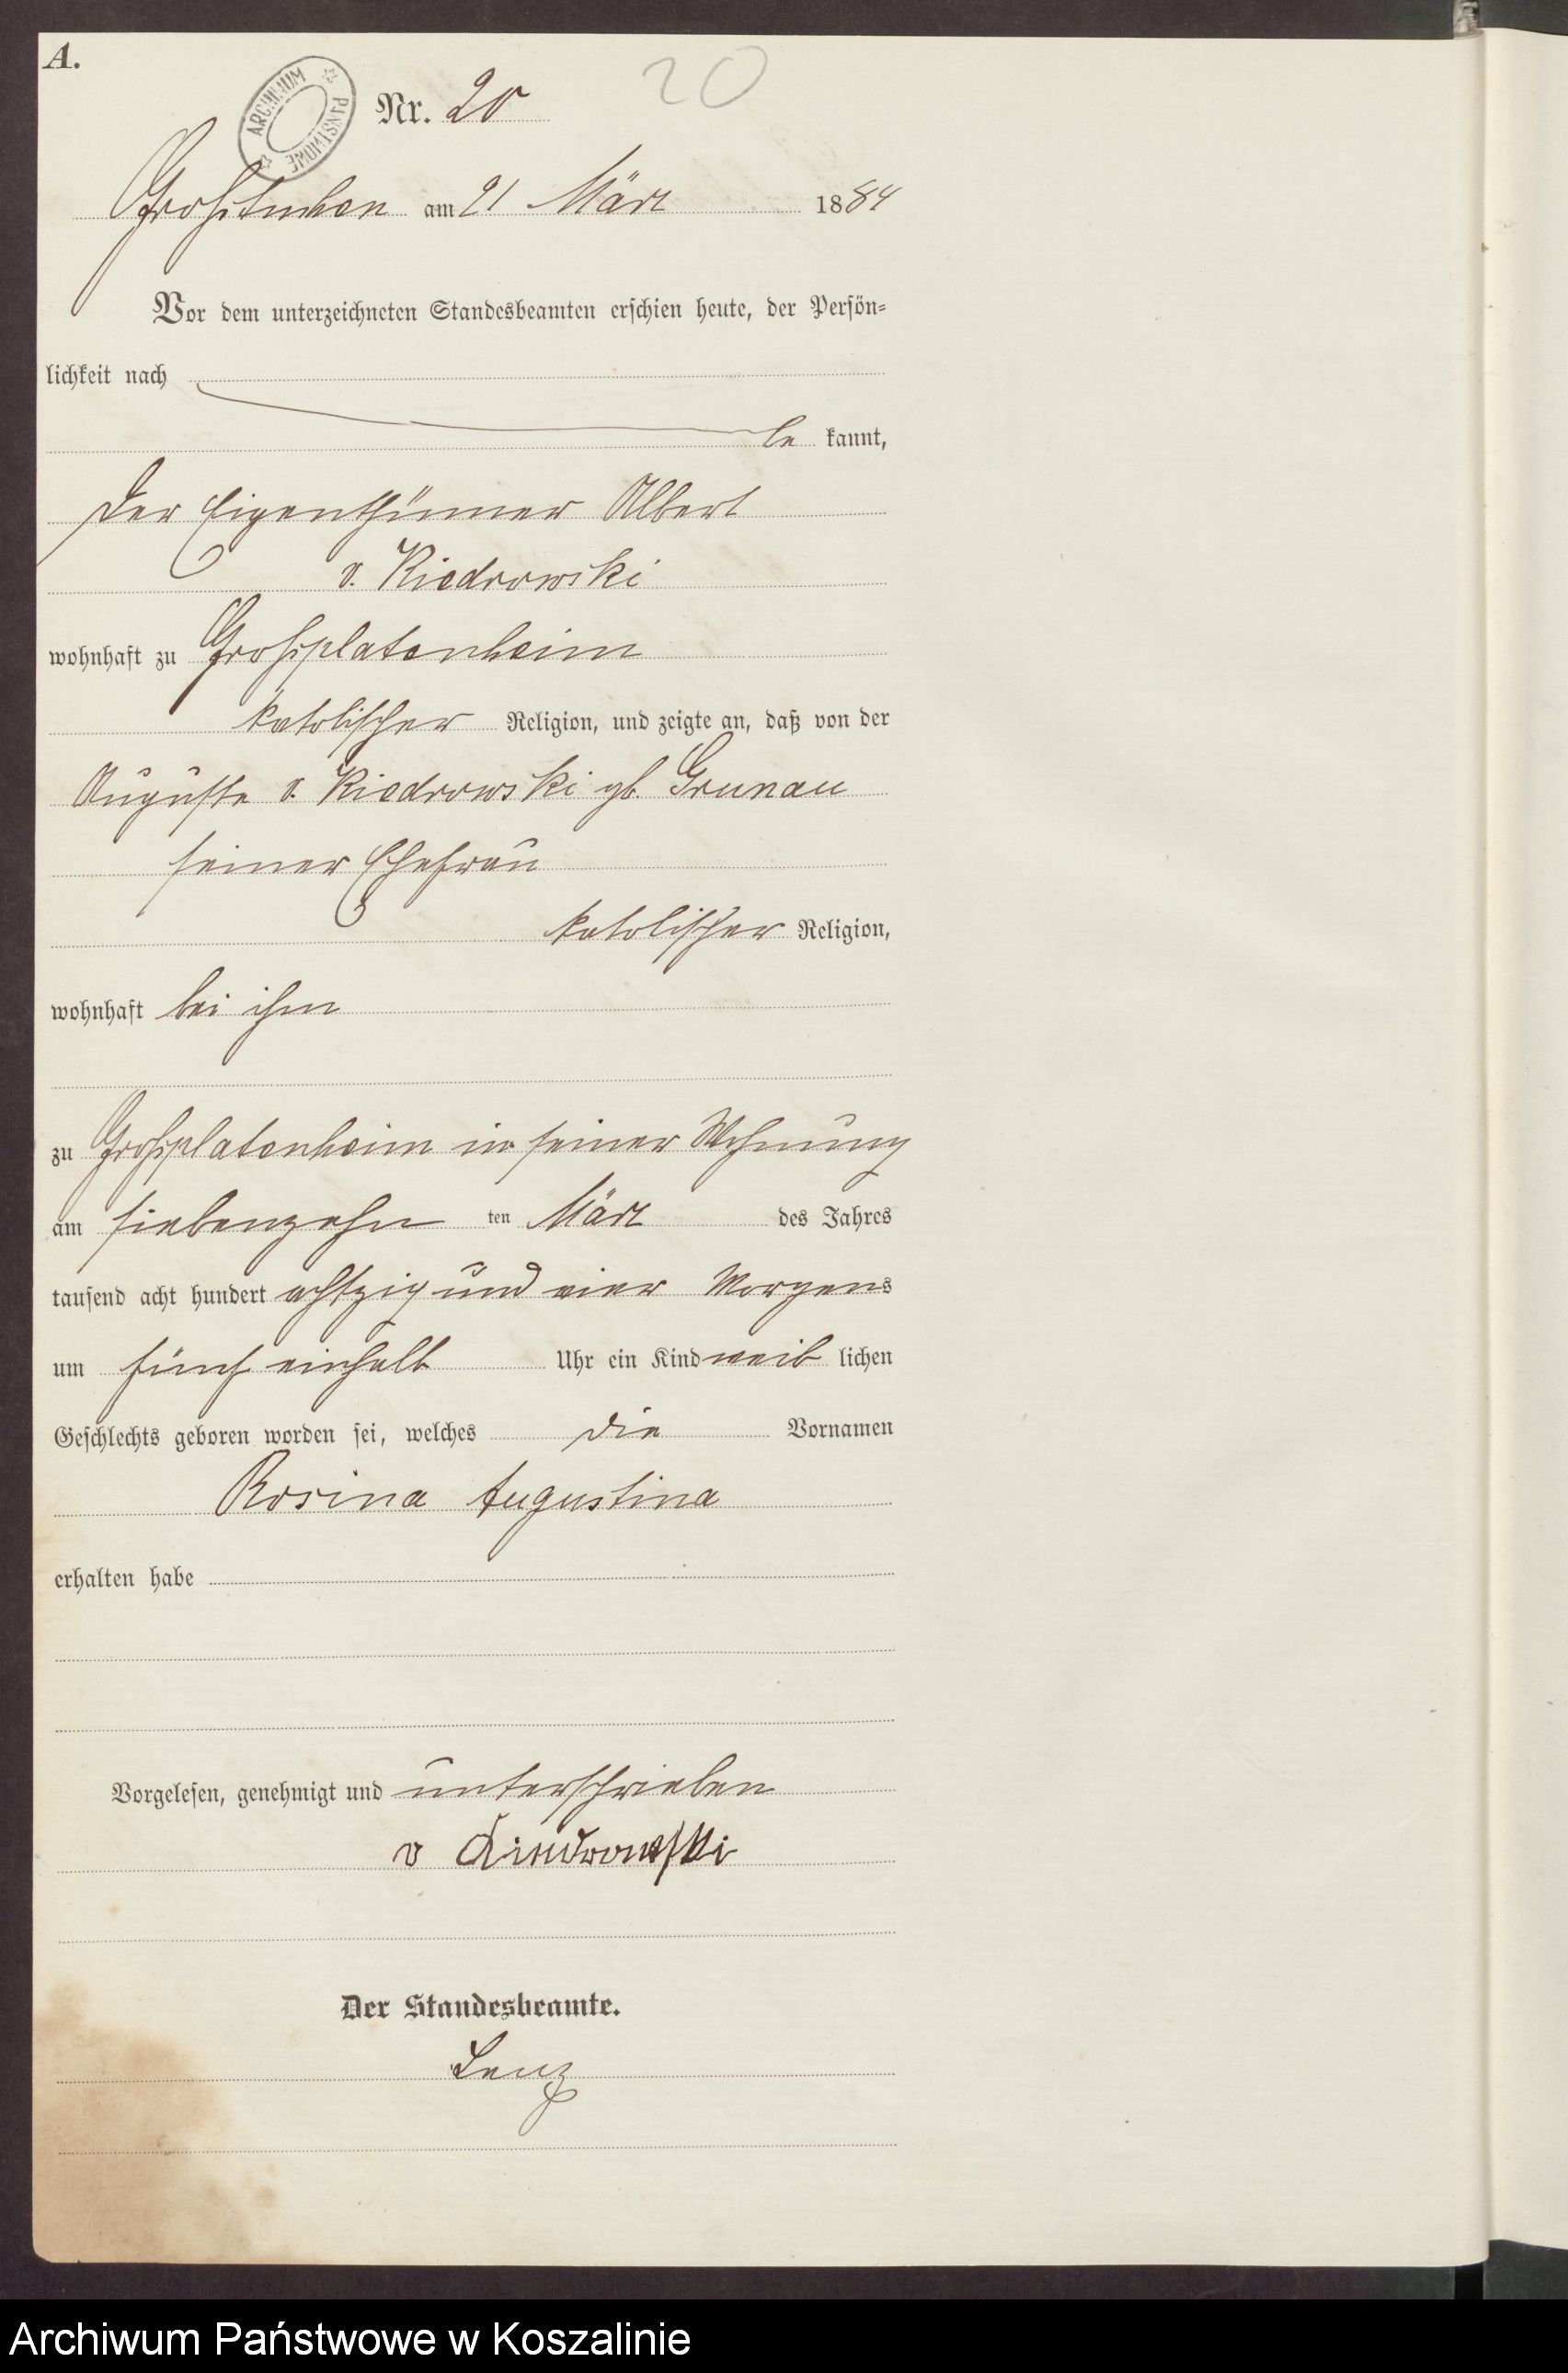 A.
ARCHIWUM PAŃSTWOWE
Nr. 20
20
Großtuchen am 21 März 1884
Vor dem unterzeichneten Standesbeamten erschien heute, der Persön=
lichkeit nach
be kannt,
der Eigenthümer Albert
v. Kiedrowski
wohnhaft zu Großplatenheim
katolischer Religion, und zeigte an, daß von der
Auguste v. Kiedrowski gb. Grunau
seiner Ehefrau
katolischer Religion,
wohnhaft bei ihm
zu Großplatenheim in seiner Wohnung
am siebenzehn ten März des Jahres
tausend acht hundert achtzig und vier Morgens
um fünf einhalb Uhr ein Kind weib lichen
Geschlechts geboren worden sei, welches die Vornamen
Rosina Augustina
erhalten habe
Vorgelesen, genehmigt und unterschrieben
v Kiedrowski
Der Standesbeamte.
Lenz
Archiwum Państwowe w Koszalinie